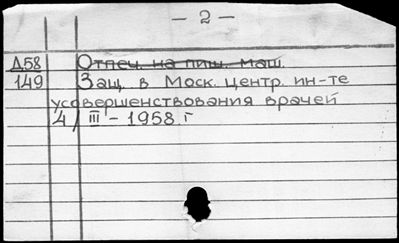 - 2 -
Д58 Отпеч. на пиш. маш.
149 Защ. в Моск. центр. ин-те
усовершенствования врачей
4/III-1958 г